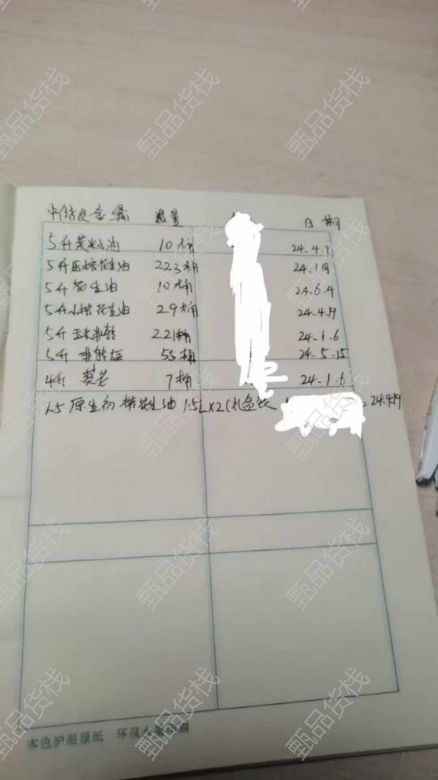 数量 日期
5升菜籽油 10桶 24.4.7
5升压榨花生油 223桶 24.1月
5升花生油 10桶 24.6.4
5升小榨花生油 29桶 24.4.19
5升玉米非转 221桶 24.1.6
5升非转 55桶 24.5.15
4升葵花 7桶 24.1.6
原生初榨花生油 1.5L×2(礼盒装 24.4.19
本色护眼原纸 环保
甄品货栈